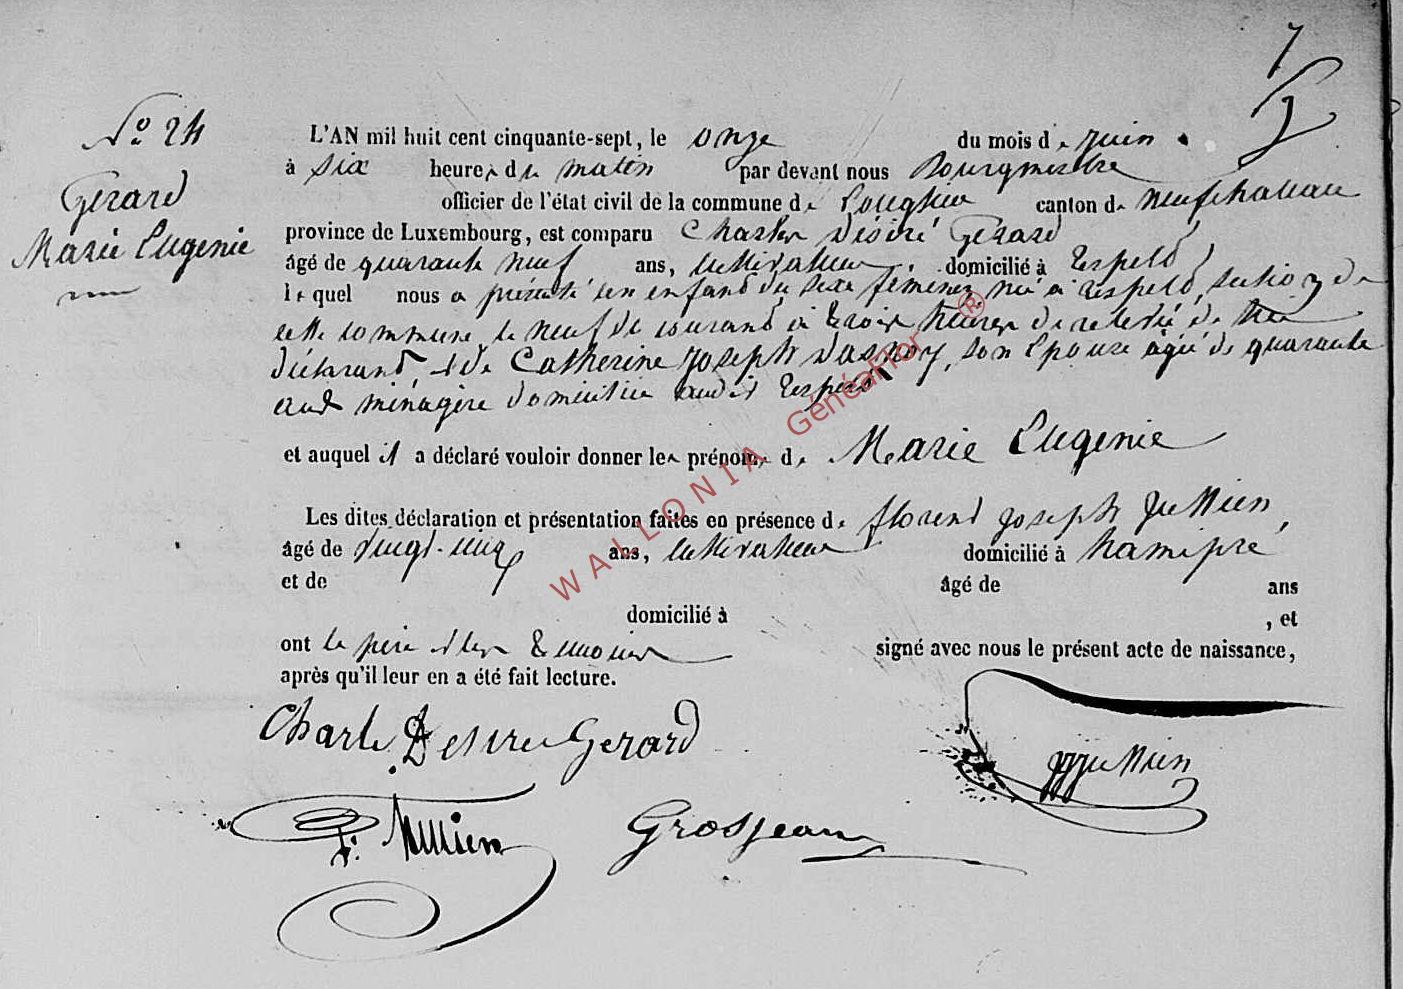 7
No 24
Gerard
Marie Eugenie
L'AN mil huit cent cinquante-sept, le onze du mois de juin
à six heures du matin par devant nous Bourgmestre
officier de l'état civil de la commune de Longlier canton de Neufchateau
province de Luxembourg, est comparu Charles Désiré Gerard
âgé de quarante neuf ans, cultivateur, domicilié à Respelt
lequel nous a présenté un enfant du sexe féminin, né à Respelt, section de
cette commune, le neuf du courant à trois heures de relevé de lui
déclarant, et de Catherine Joseph Dasnoy, son Epouse agée de quarante
ans ménagère domiciliée audit Respelt
et auquel il a déclaré vouloir donner les prénoms de Marie Eugenie
Les dites déclaration et présentation faites en présence de florent Joseph
âgé de vingt-cinq ans, cultivateur domicilié à hamipré
et de âgé de ans
domicilié à , et
ont le père et les témoins signé avec nous le présent acte de naissance,
après qu'il leur en a été fait lecture.
Charle Desire Gerard
Grosjean
WALLONIA GénéaFlor ®